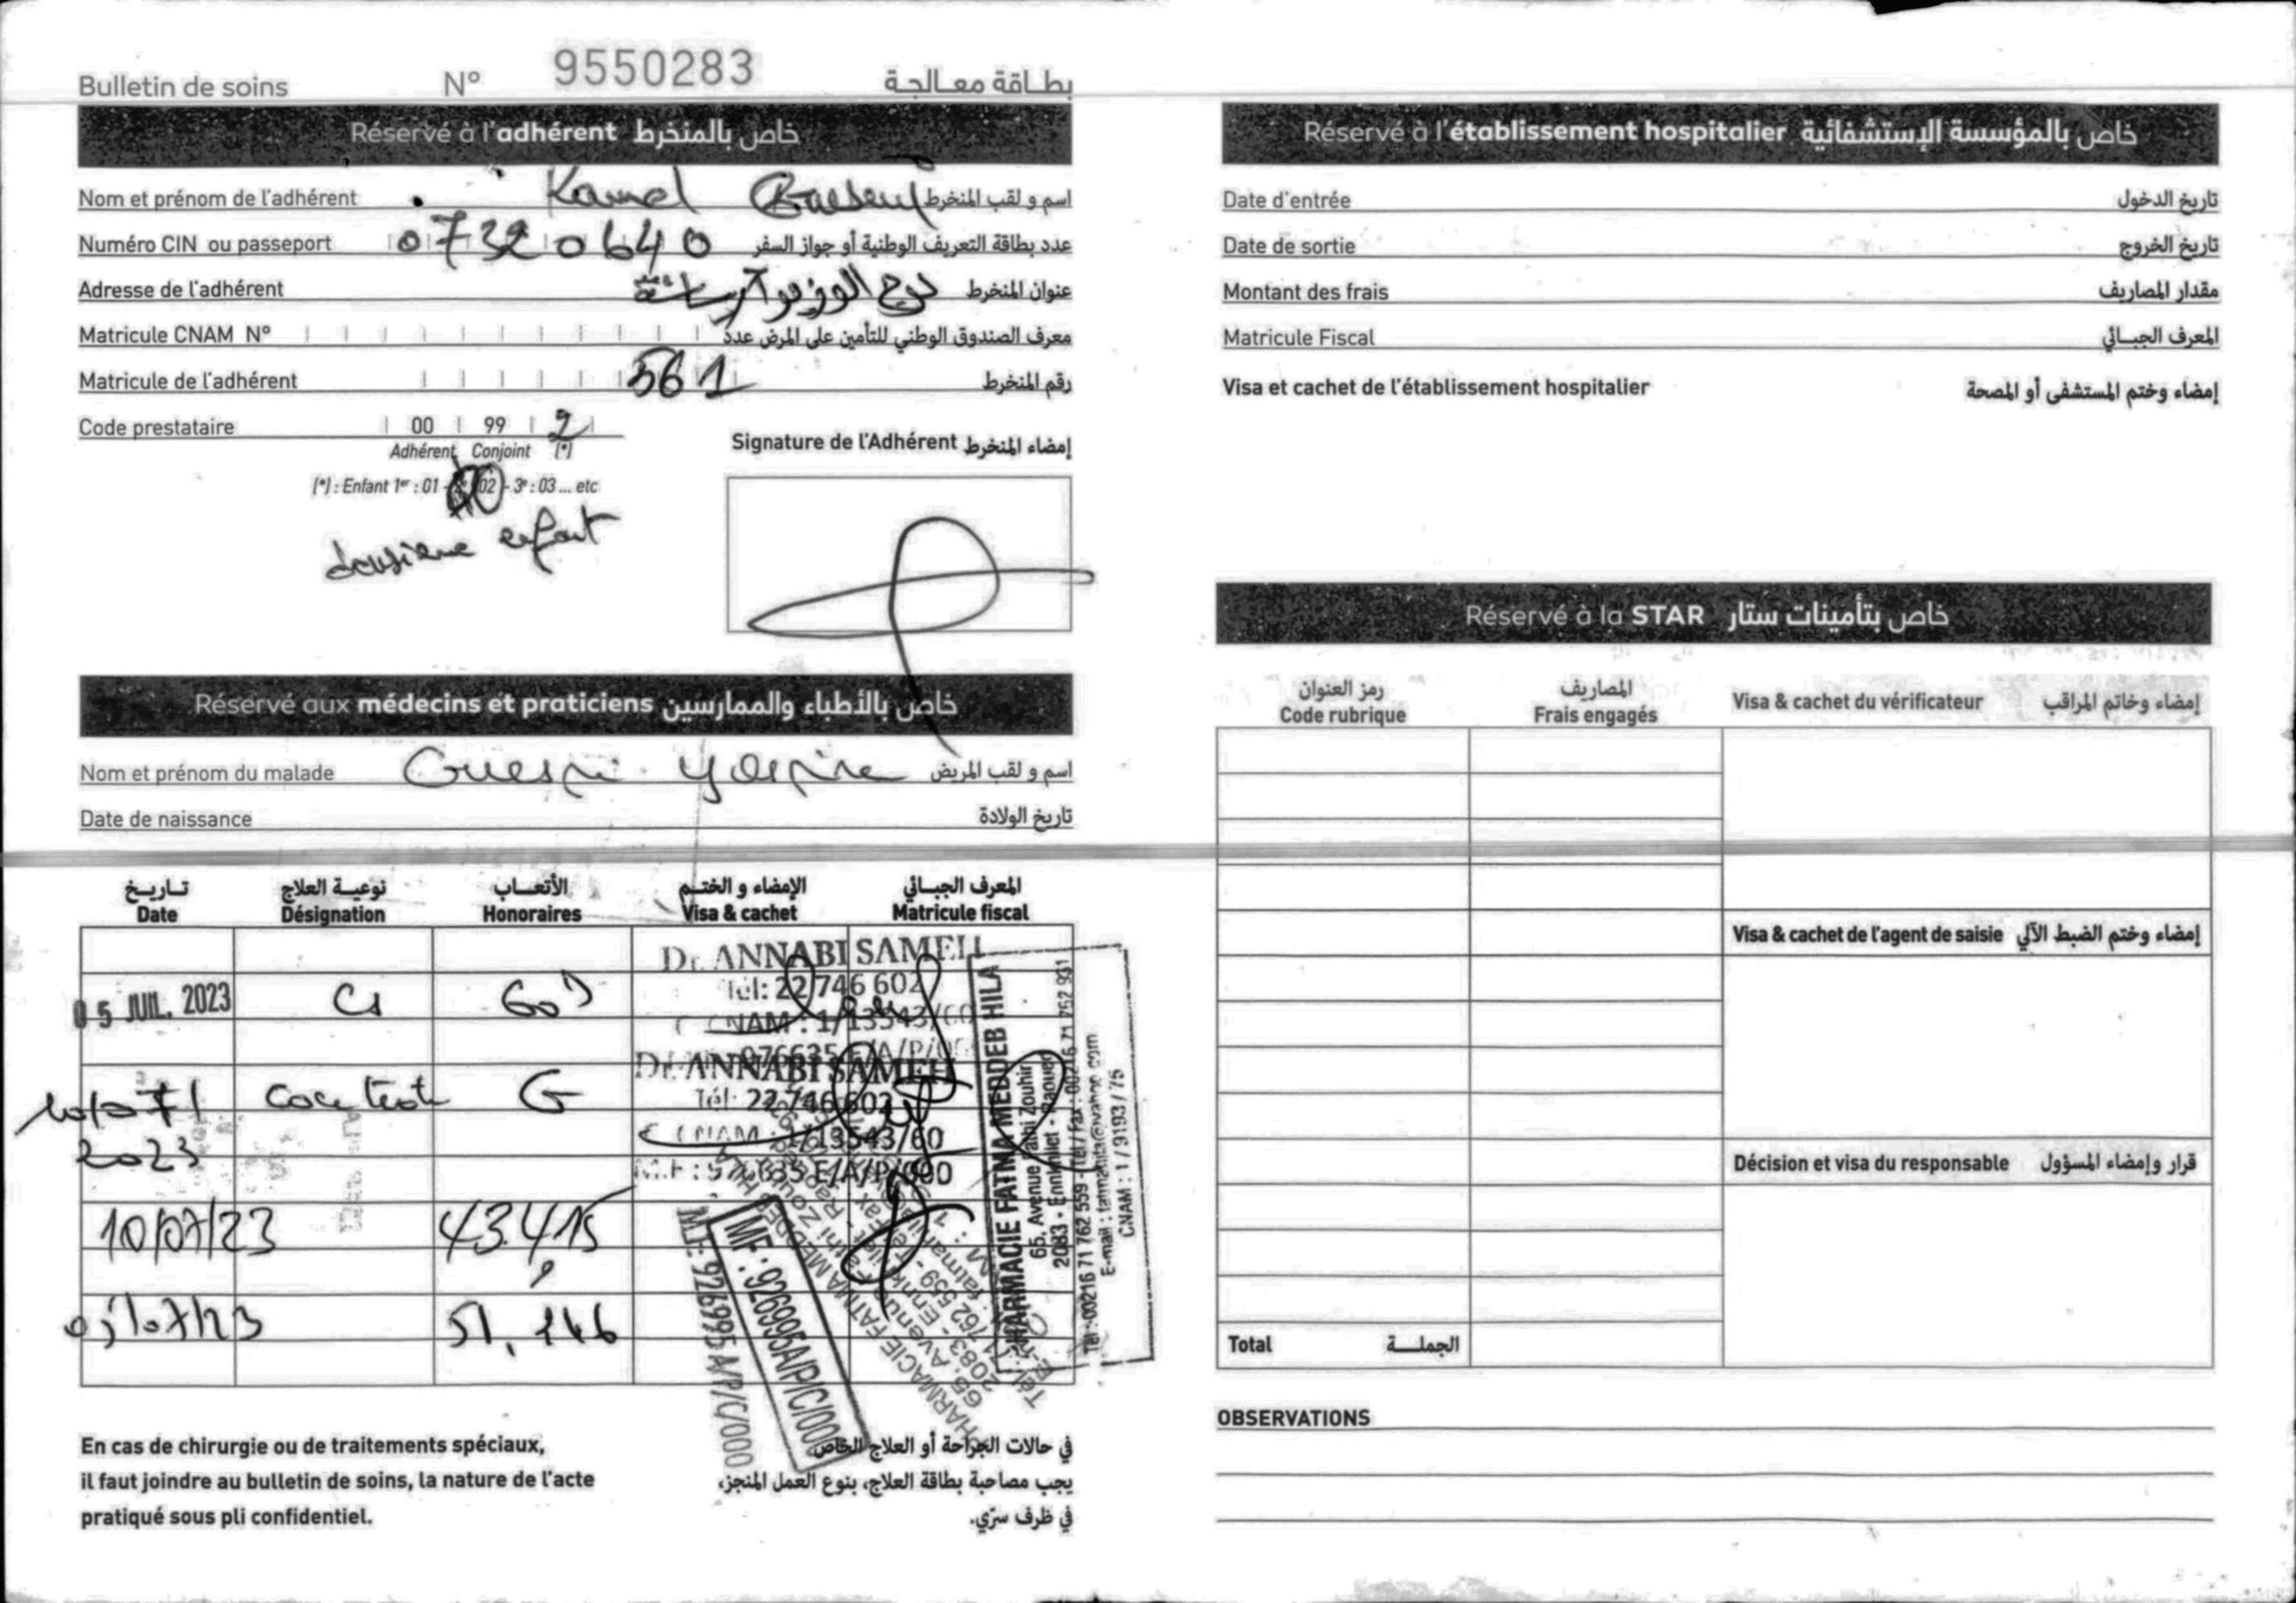 Bulletin de soins N° 9550283 بطاقة معالجة
Réservé à l'adhérent خاص بالمنخرط
Nom et prénom de l'adhérent Kamel اسم و لقب المنخرط
Numéro CIN ou passeport 07320640 عدد بطاقة التعريف الوطنية أو جواز السفر
Adresse de l'adhérent عنوان المنخرط
Matricule CNAM N° معرف الصندوق الوطني للتأمين على المرض عدد
Matricule de l'adhérent 561 رقم المنخرط
Code prestataire 00 99 2
Adhérent Conjoint (*)
(*) : Enfant 1er : 01 - 02 - 3e : 03 ... etc
deusieme enfant
Signature de l'Adhérent إمضاء المنخرط
Réservé aux médecins et praticiens خاص بالأطباء والممارسين
Nom et prénom du malade اسم و لقب المريض
Date de naissance تاريخ الولادة
تاريخ نوعية العلاج الأتعاب الإمضاء و الختم المعرف الجبائي
Date Désignation Honoraires Visa & cachet Matricule fiscal
05 JUIL. 2023 Cs 60D
Dr. ANNABI SAMEH
Tél: 22 746 602
CNAM : 1/13543/60
10/07/ 2023 G
Dr ANNABI SAMEH
Tél: 22 746 602
CNAM : 1/13543/60
10/07/23 43.415
05/07/23 51,146
MF : 926995A/P/C/000
M.F: 926995 A/P/C/000
PHARMACIE FATMA MEDDEB HILA
65, Avenue Fathi Zouhir
2083 - Ennkhilet - Raoued
Tél : 00216 71 762 559 - Tél / Fax : 00216 71 762 931
CNAM : 1 / 9193 / 75
En cas de chirurgie ou de traitements spéciaux,
il faut joindre au bulletin de soins, la nature de l'acte
pratiqué sous pli confidentiel.
في حالات الجراحة أو العلاج الخاص
يجب مصاحبة بطاقة العلاج، بنوع العمل المنجز،
في ظرف سرّي.
Réservé à l'établissement hospitalier خاص بالمؤسسة الإستشفائية
Date d'entrée تاريخ الدخول
Date de sortie تاريخ الخروج
Montant des frais مقدار المصاريف
Matricule Fiscal المعرف الجبائي
Visa et cachet de l'établissement hospitalier إمضاء وختم المستشفى أو المصحة
Réservé à la STAR خاص بتأمينات ستار
رمز العنوان المصاريف
Code rubrique Frais engagés Visa & cachet du vérificateur إمضاء وخاتم المراقب
Visa & cachet de l'agent de saisie إمضاء وختم الضبط الآلي
Décision et visa du responsable قرار وإمضاء المسؤول
Total الجملة
OBSERVATIONS